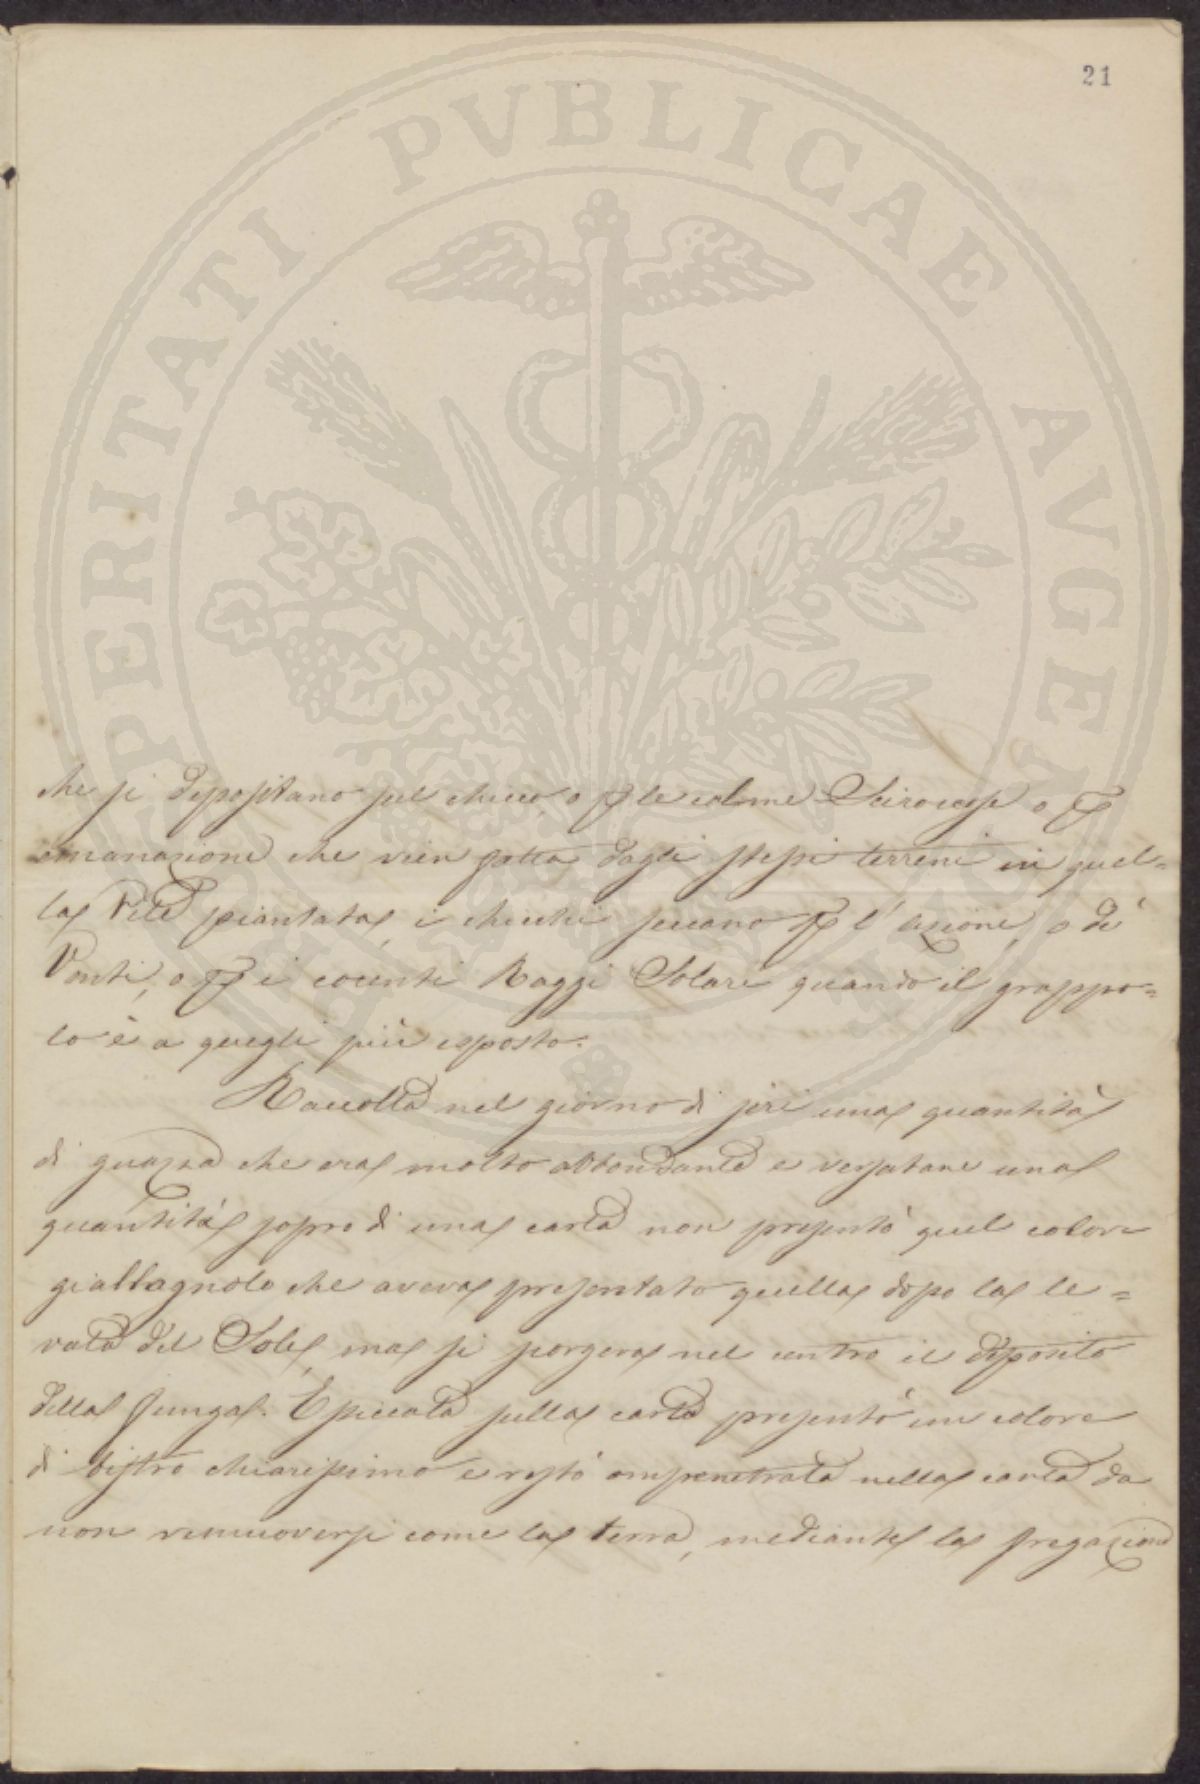 21
PROSPERITATI PVBLICAE AVGENDAE
che si depositano sul chicco, o p le calme Sciroccose o p
emanazione che vien fatta dagli stessi terreni in quel=
la Vite piantata, i chicchi seccano p l'azione, o dè
Venti, o p i cocenti Raggi Solari quando il grappo=
lo è a quegli più esposto.
Raccolta nel giorno di jeri una quantità
di guazza che era molto abbondante e versatane una
quantità sopra di una carta non presentò quel colore
giallagnolo che aveva presentato quella dopo la le=
vata del Sole, ma si scorgeva nel centro il deposito
della funga. Essiccata sulla carta presentò un colore
di bistro chiarissimo e restò compenetrata nella carta da
non rimuoversi come la terra, mediante la fregazione